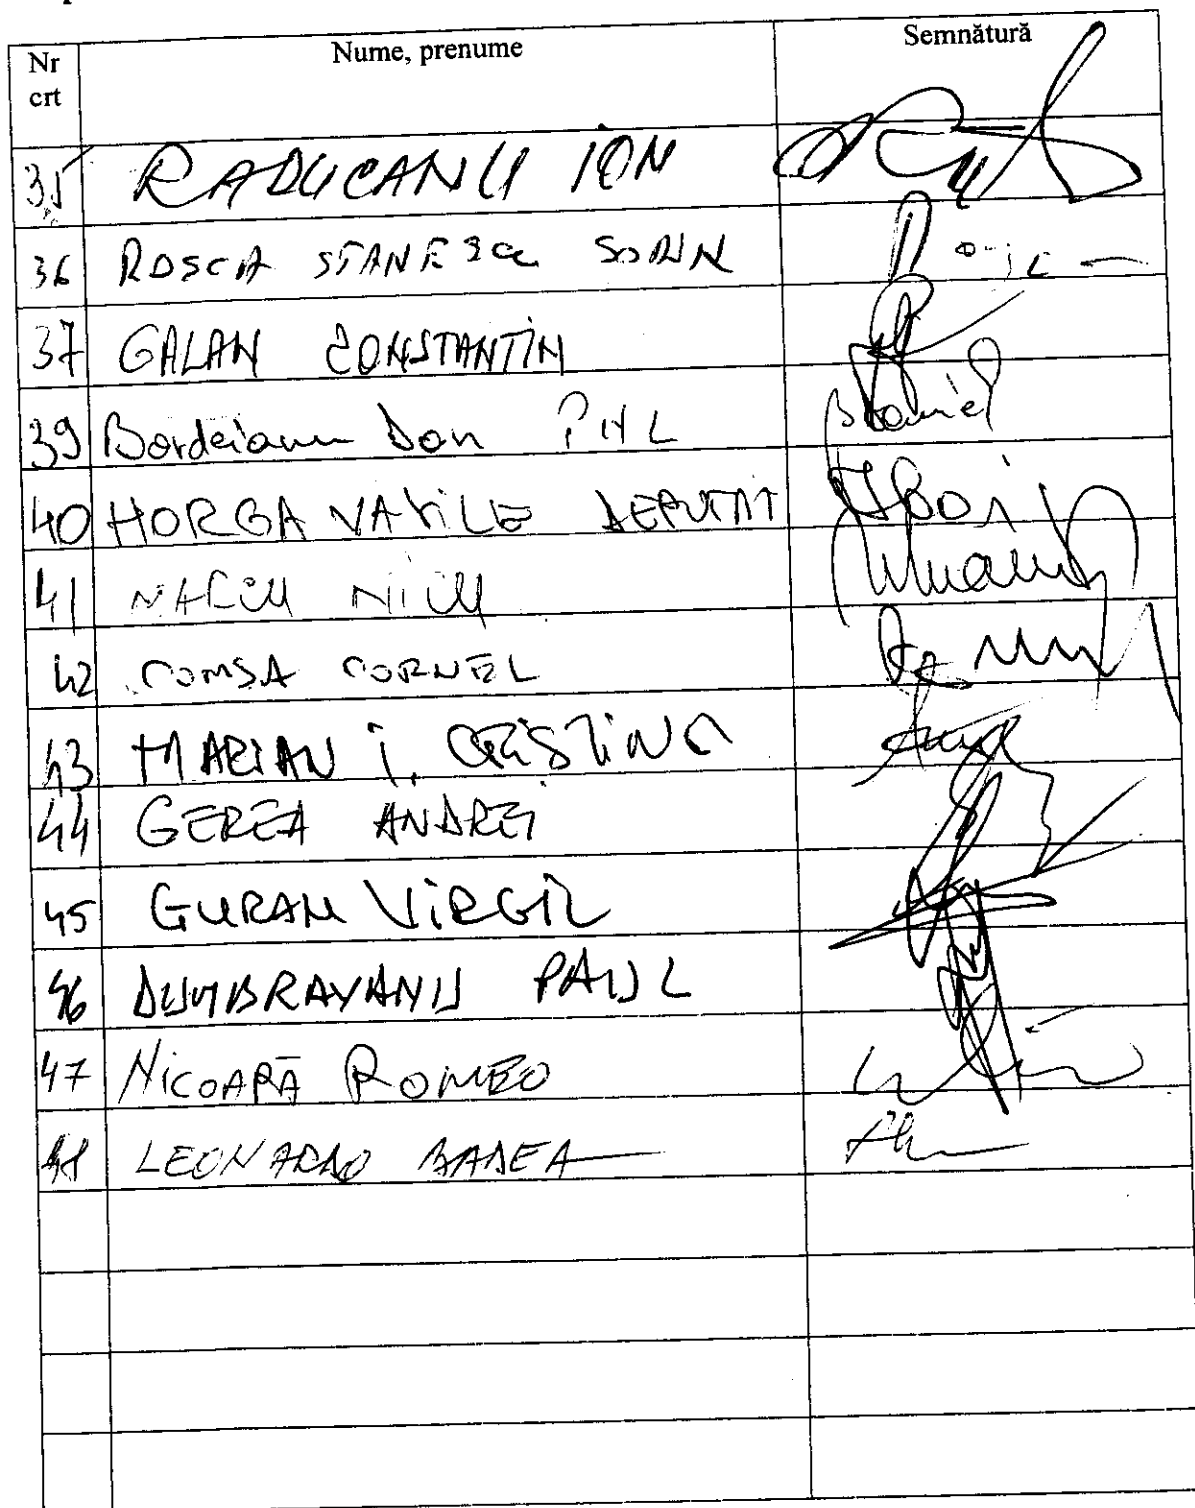 Nr crt Nume, prenume Semnătură
35 RADUCANU ION
36 ROSCA STANESCU SORIN
37 GALAN CONSTANTIN
39 Bordeianu Dan PNL
40 HORGA VASILE DEPUTAT
41 NICU
42 COMSA CORNEL
43 MARIAN I. CRISTINA
44 GEREA ANDREI
45 GURAN VIRGIL
46 DUMBRAVANU PAUL
47 NICOARĂ ROMEO
48 LEONARDO BADEA